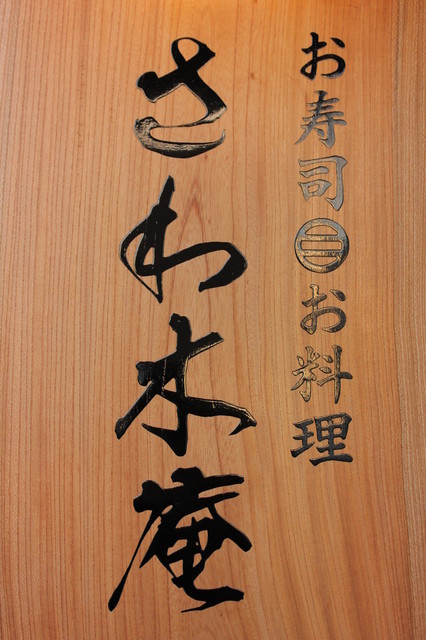 お寿司㊂お料理
さわ木庵